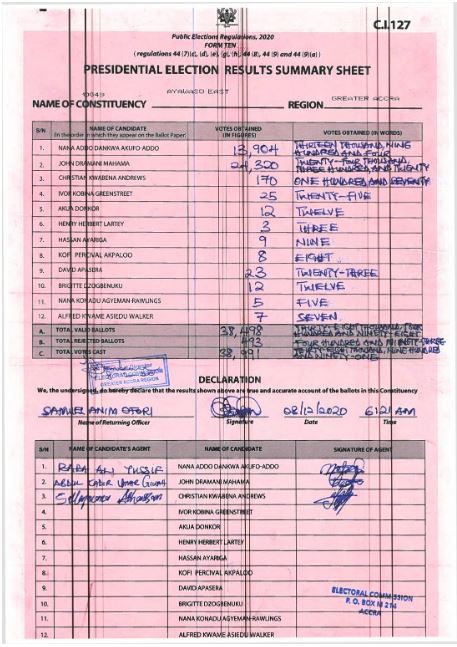 C.I.127
Public Elections Regulations, 2020
FORM TEN
(regulations 44 (7)(c), (d), (e), (g), (h), 44 (8), 44 (9) and 44 (9)(a))
PRESIDENTIAL ELECTION RESULTS SUMMARY SHEET
AYAWASO EAST
NAME OF CONSTITUENCY REGION GREATER ACCRA
S/N NAME OF CANDIDATE (In the order in which they appear on the Ballot Paper) VOTES OBTAINED (IN FIGURES) VOTES OBTAINED (IN WORDS)
1. NANA ADDO DANKWA AKUFO-ADDO 13,904 THIRTEEN THOUSAND, NINE HUNDRED AND FOUR
2. JOHN DRAMANI MAHAMA 24,320 TWENTY-FOUR THOUSAND, THREE HUNDRED AND TWENTY
3. CHRISTIAN KWABENA ANDREWS 170 ONE HUNDRED AND SEVENTY
4. IVOR KOBINA GREENSTREET 25 TWENTY-FIVE
5. AKUA DONKOR 12 TWELVE
6. HENRY HERBERT LARTEY 3 THREE
7. HASSAN AYARIGA 9 NINE
8. KOFI PERCIVAL AKPALOO 8 EIGHT
9. DAVID APASERA 23 TWENTY-THREE
10. BRIGITTE DZOGBENUKU 12 TWELVE
11. NANA KONADU AGYEMAN-RAWLINGS 5 FIVE
12. ALFRED KWAME ASIEDU WALKER 7 SEVEN
A. TOTAL VALID BALLOTS 38,498 THIRTY-EIGHT THOUSAND, FOUR HUNDRED AND NINETY-EIGHT
B. TOTAL REJECTED BALLOTS 493 FOUR HUNDRED AND NINETY-THREE
C. TOTAL VOTES CAST 38,991 THIRTY-EIGHT THOUSAND, NINE HUNDRED AND NINETY-ONE
DECLARATION
We, the undersigned, do hereby declare that the results shown above is a true and accurate account of the ballots in this Constituency
SAMUEL ANIM OFORI 08/12/2020 6:21 AM
Name of Returning Officer Signature Date Time
S/N NAME OF CANDIDATE'S AGENT NAME OF CANDIDATE SIGNATURE OF AGENT
1. BABA ALI YUSSIF NANA ADDO DANKWA AKUFO-ADDO
2. ABDUL JOHN DRAMANI MAHAMA
3. CHRISTIAN KWABENA ANDREWS
4. IVOR KOBINA GREENSTREET
5. AKUA DONKOR
6. HENRY HERBERT LARTEY
7. HASSAN AYARIGA
8. KOFI PERCIVAL AKPALOO
9. DAVID APASERA
10. BRIGITTE DZOGBENUKU
11. NANA KONADU AGYEMAN-RAWLINGS
12. ALFRED KWAME ASIEDU WALKER
ELECTORAL COMMISSION
P. O. BOX M 214
ACCRA